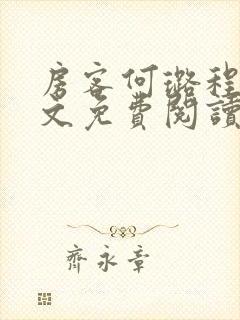 房客何璐程
文免費閱讀
齊永章